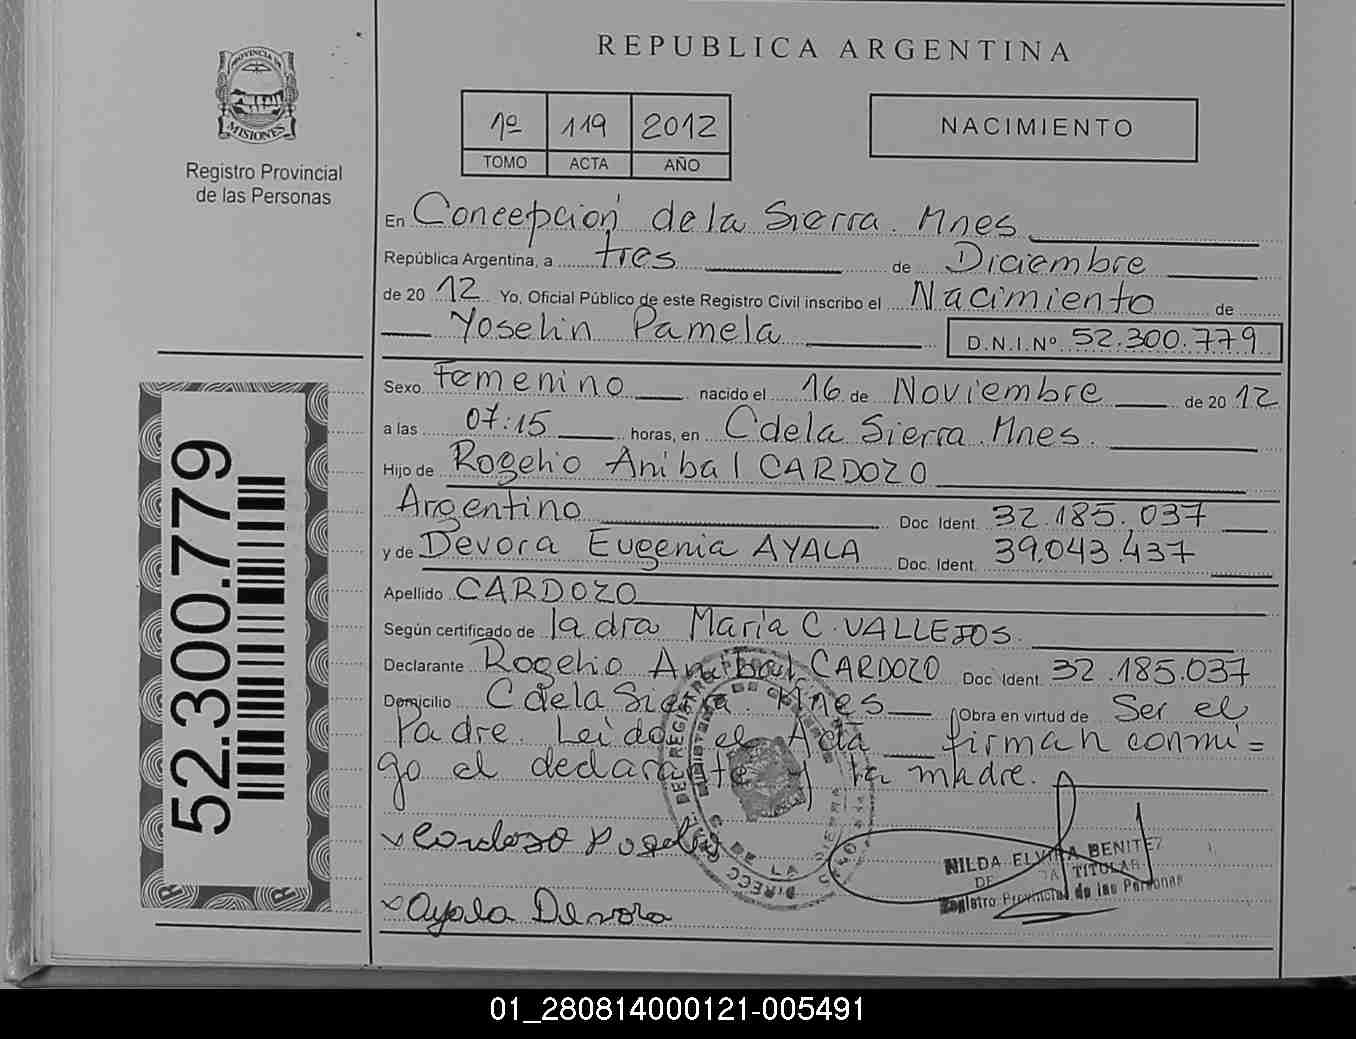 REPUBLICA ARGENTINA
PROVINCIA DE
MISIONES
Registro Provincial
de las Personas
1º 119 2012
TOMO ACTA AÑO
NACIMIENTO
En Concepción de la Sierra. Mnes
República Argentina, a tres de Diciembre
de 2012 Yo, Oficial Público de este Registro Civil inscribo el Nacimiento de
Yoselin Pamela D.N.I.Nº 52.300.779
Sexo Femenino nacido el 16 de Noviembre de 2012
a las 07:15 horas, en C de la Sierra. Mnes.
Hijo de Rogelio Anibal CARDOZO
Argentino Doc. Ident. 32.185.037
y de Devora Eugenia AYALA Doc. Ident. 39.043.437
Apellido CARDOZO
Según certificado de la dra María C. VALLEJOS.
Declarante Rogelio Anibal CARDOZO Doc. Ident. 32.185.037
Domicilio C de la Sierra. Mnes Obra en virtud de Ser el
Padre. Leido el Acta firman conmi=
go el declarante y la madre.
x Cardozo Rogelio
x Ayala Devora
NILDA ELVIRA BENITEZ
TITULAR
Registro Provincial de las Personas
52.300.779
01_280814000121-005491